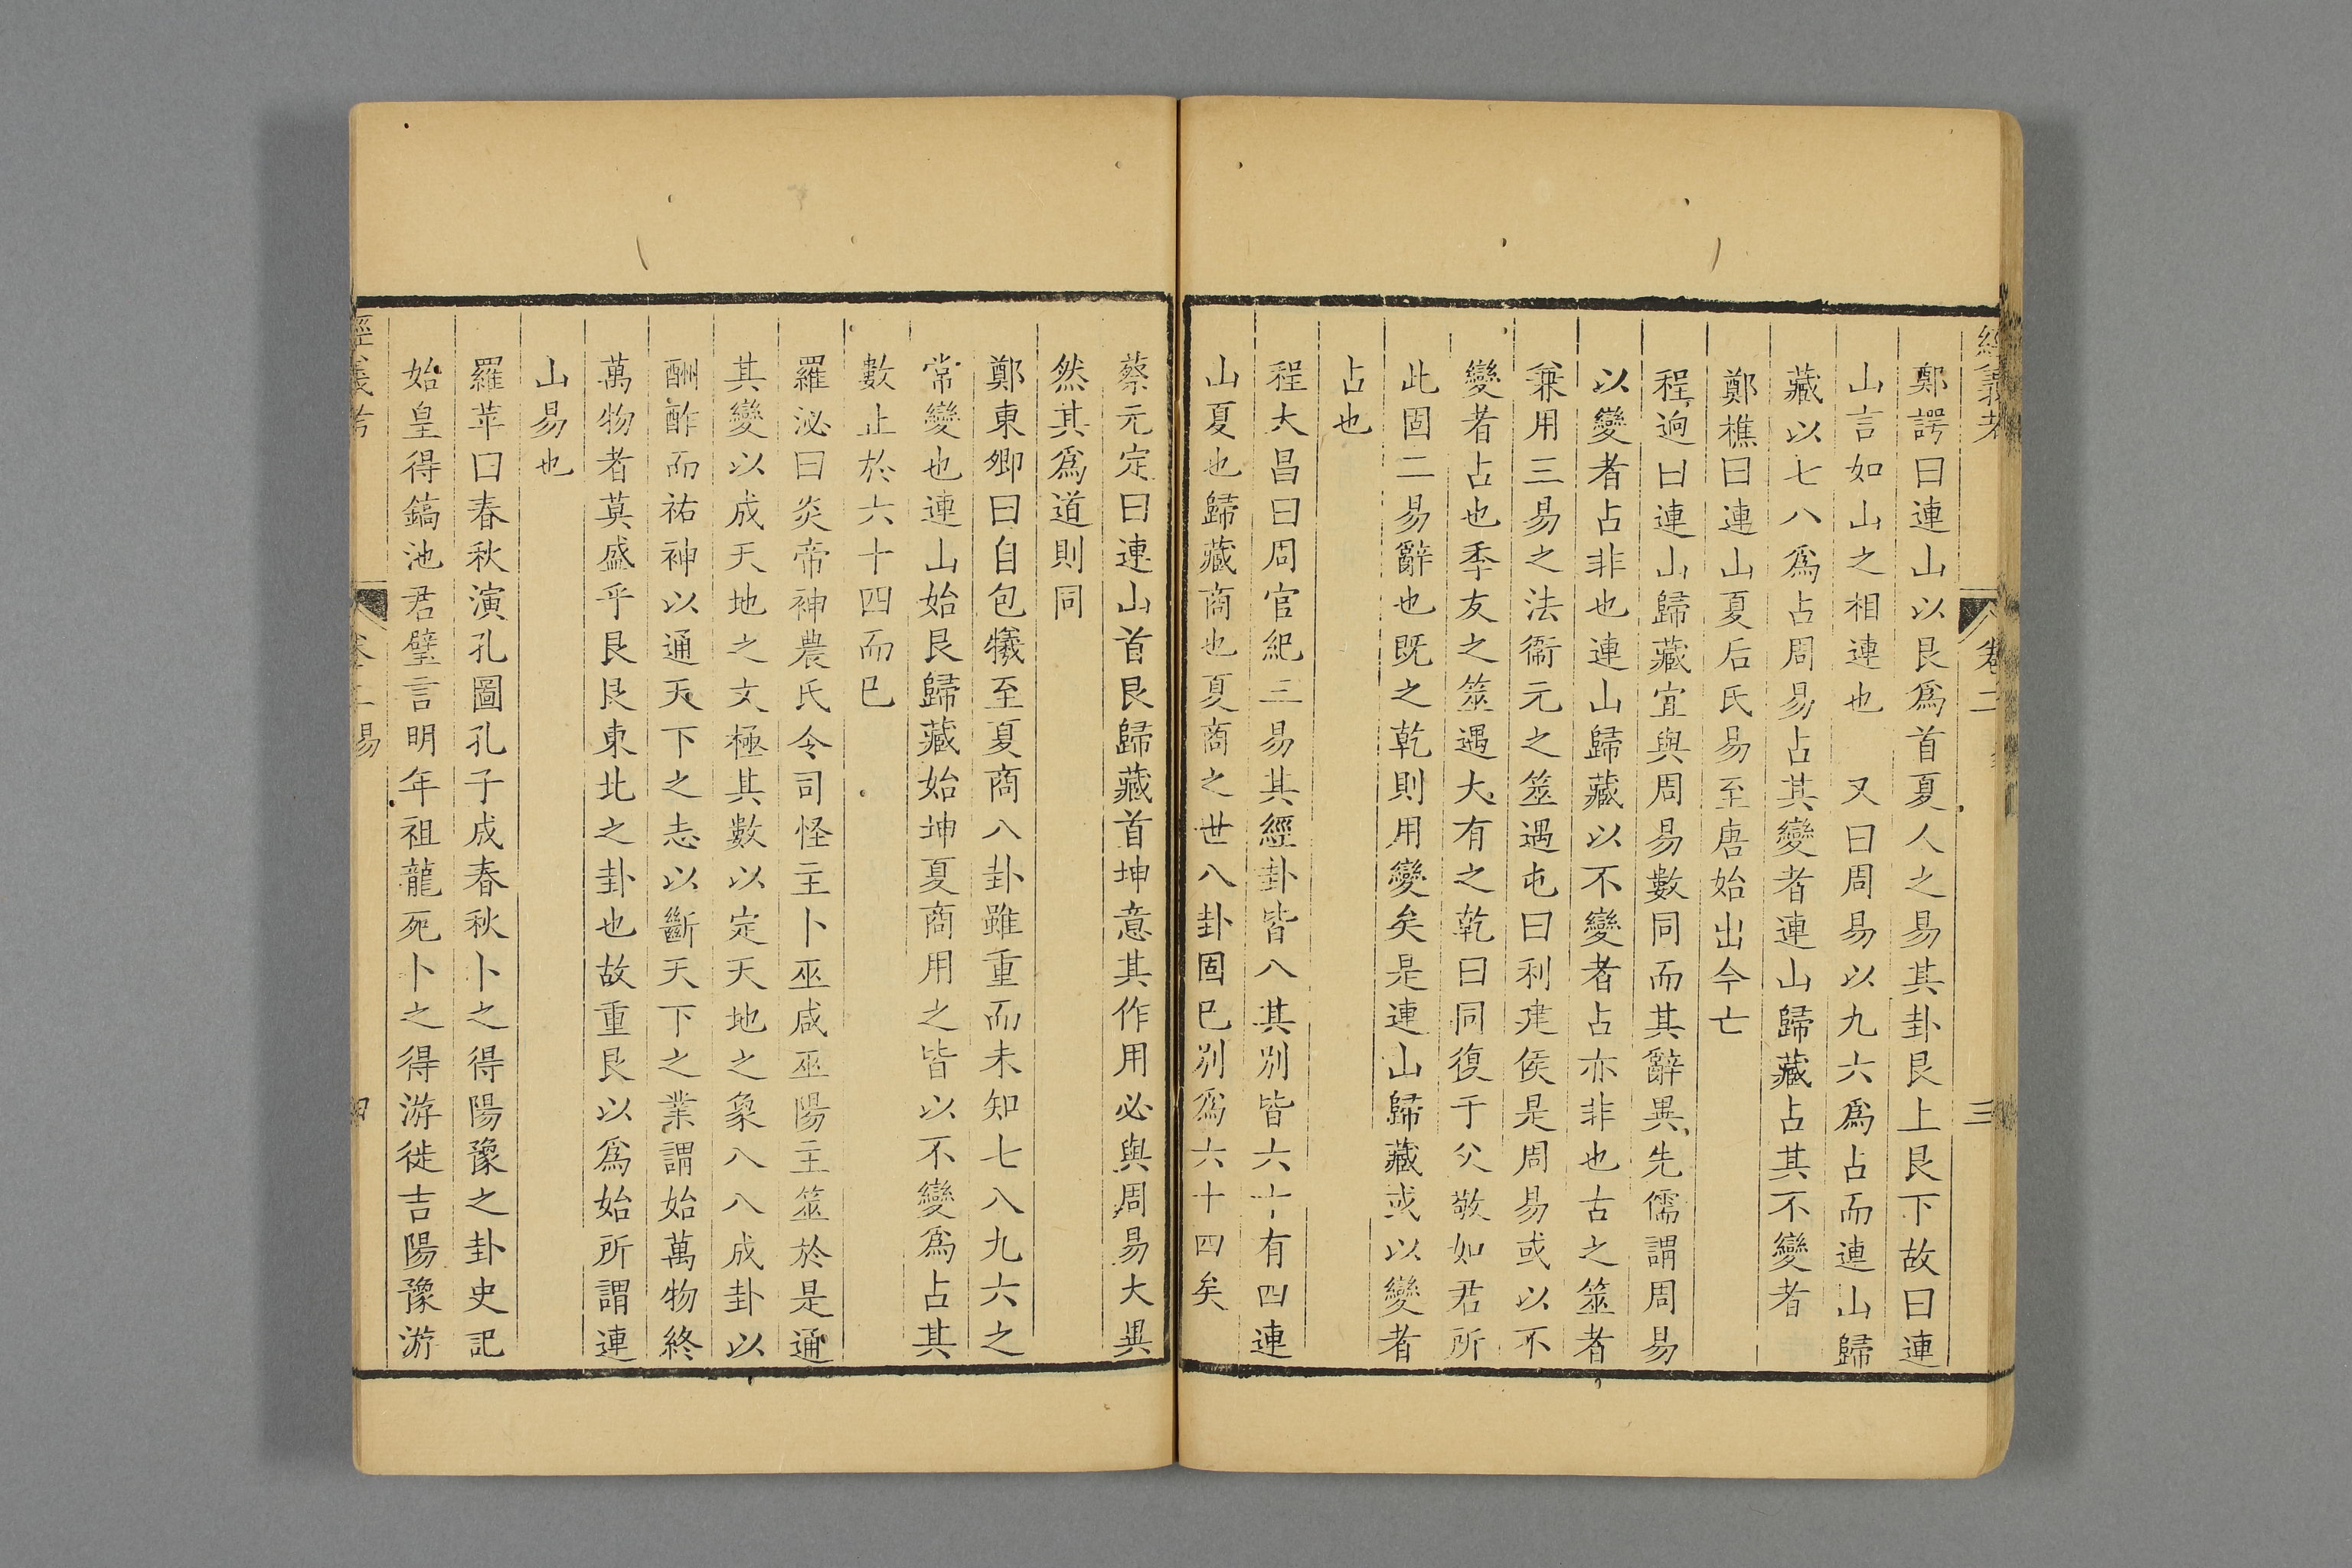 經義考
卷二
三
鄭諤曰連山以艮爲首夏人之易其卦艮上艮下故曰連
山言如山之相連也　又曰周易以九六爲占而連山歸
藏以七八爲占周易占其變者連山歸藏占其不變者
鄭樵曰連山夏后氏易至唐始出今亡
程逈曰連山歸藏宜與周易數同而其辭異先儒謂周易
以變者占非也連山歸藏以不變者占亦非也古之筮者
兼用三易之法衞元之筮遇屯曰利建侯是周易或以不
變者占也季友之筮遇大有之乾曰同復于父敬如君所
此固二易辭也既之乾則用變矣是連山歸藏或以變者
占也
程大昌曰周官紀三易其經卦皆八其別皆六十有四連
山夏也歸藏商也夏商之世八卦固巳別爲六十四矣
蔡元定曰連山首艮歸藏首坤意其作用必與周易大異
然其爲道則同
鄭東卿曰自包犧至夏商八卦雖重而未知七八九六之
常變也連山始艮歸藏始坤夏商用之皆以不變爲占其
數止於六十四而巳
羅泌曰炎帝神農氏令司怪主卜巫咸巫陽主筮於是通
其變以成天地之文極其數以定天地之象八八成卦以
酬酢而祐神以通天下之志以斷天下之業謂始萬物終
萬物者莫盛乎艮艮東北之卦也故重艮以爲始所謂連
山易也
羅苹曰春秋演孔圖孔子成春秋卜之得陽豫之卦史記
始皇得鎬池君璧言明年祖龍死卜之得游徙吉陽豫游
經義考
卷二 易
四